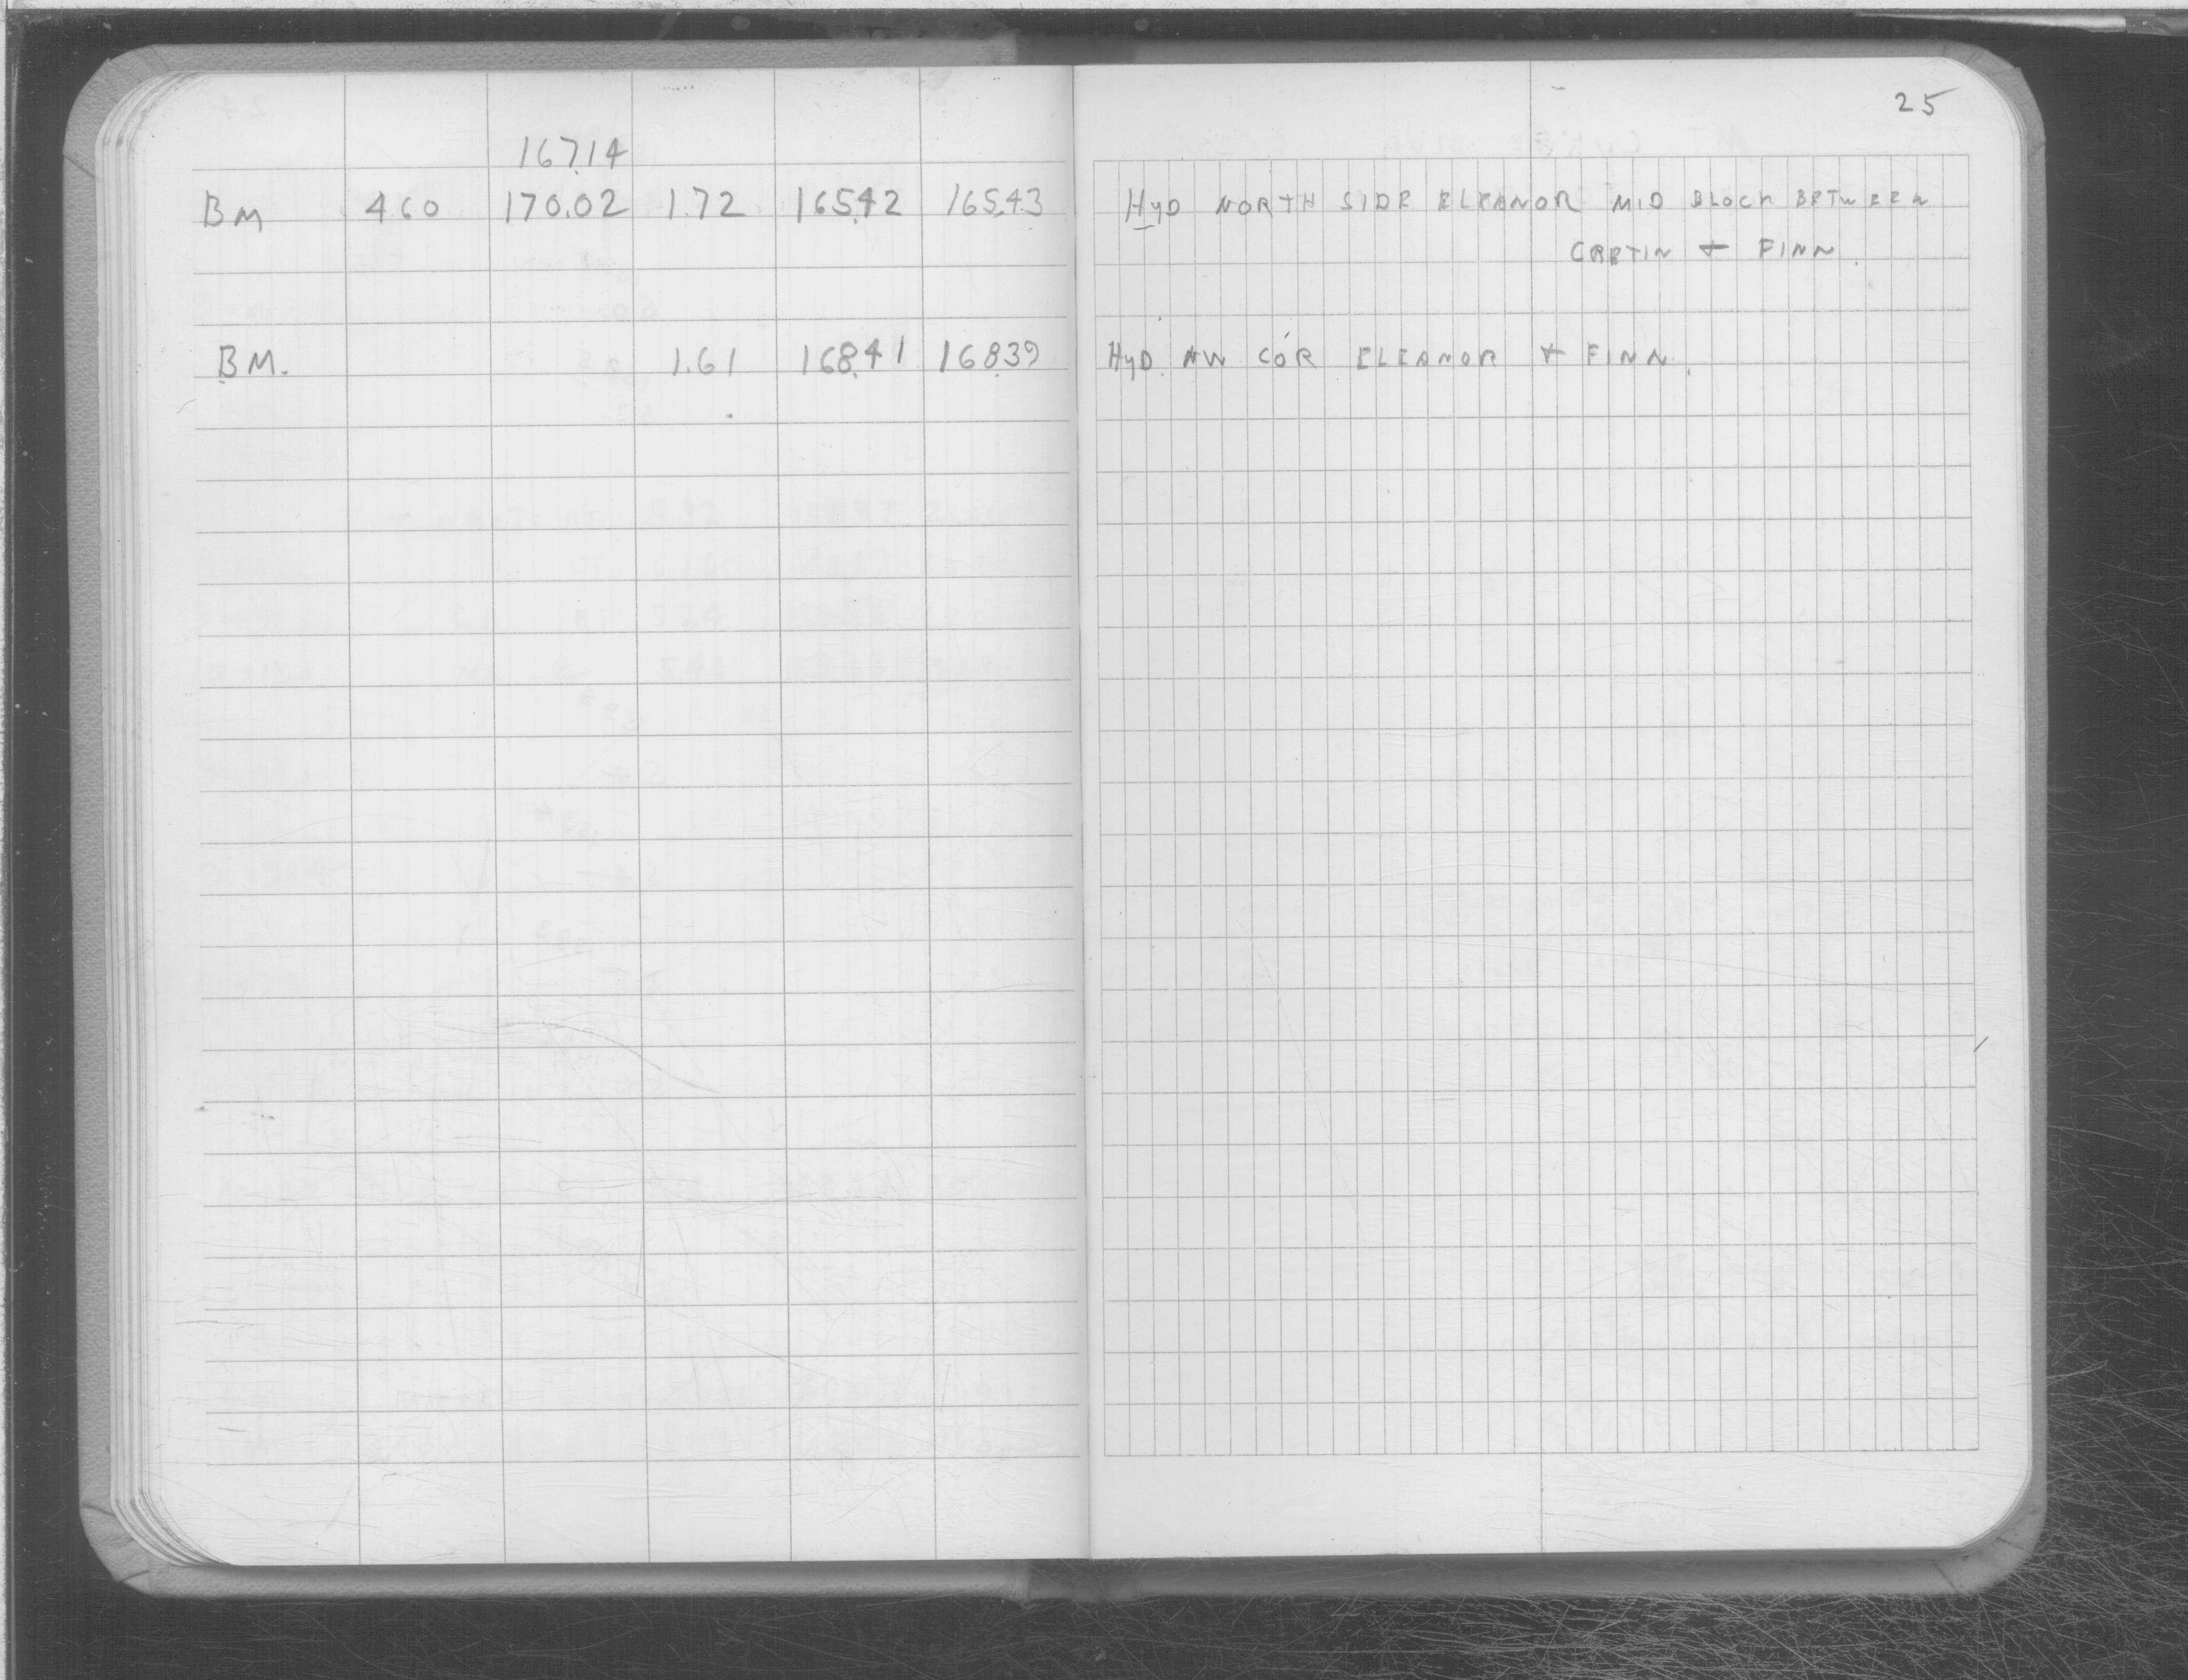 25
167.14
BM 4.60 170.02 1.72 165.42 165.43 HYD NORTH SIDE ELEANOR MID BLOCK BETWEEN
CRETIN + FINN.
BM. 1.61 168.41 168.39 HYD. NW COR ELEANOR + FINN.